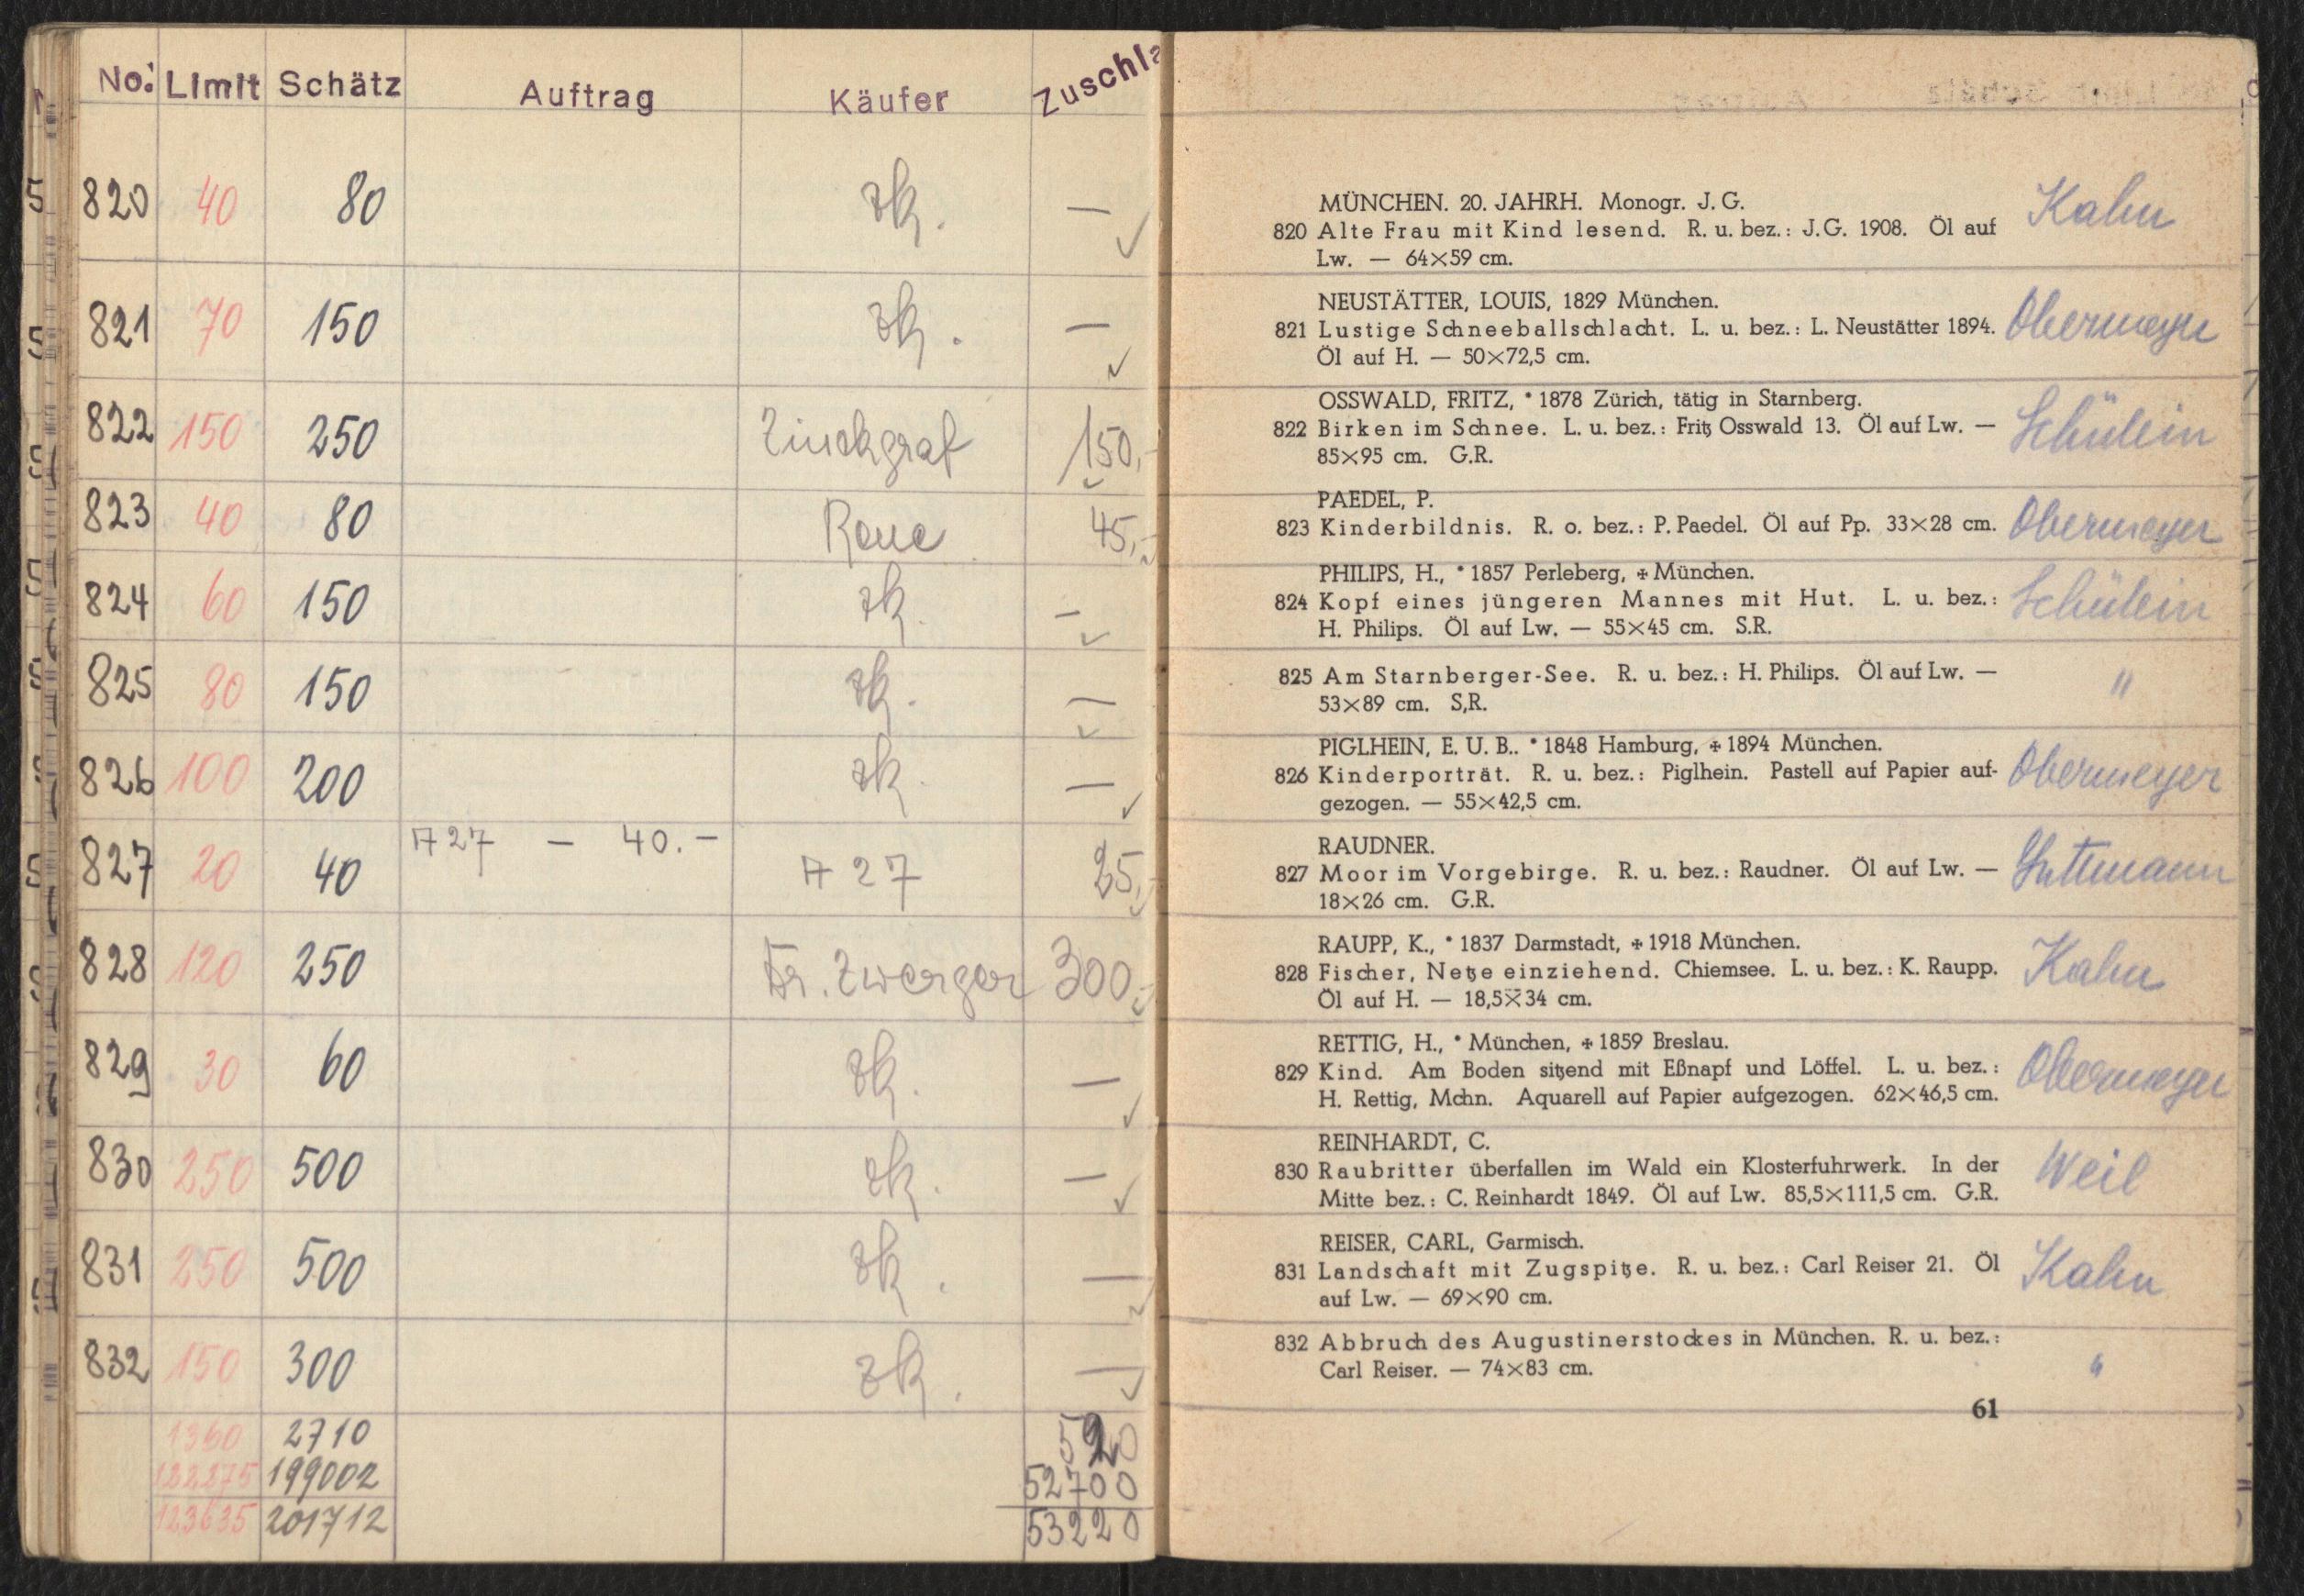 No. Limit Schätz Auftrag Käufer Zuschla
820 40 80 zk. —
821 70 150 zk. —
822 150 250 Zinckgraf 150,-
823 40 80 45,-
824 60 150 zk. —
825 80 150 zk. —
826 100 200 zk. —
827 20 40 A 27 — 40.- A 27 25,-
828 120 250 Dr. Zwerger 300,-
829 30 60 zk. —
830 250 500 zk. —
831 250 500 zk. —
832 150 300 zk. —
1360 2710 520
122275 199002 52700
123635 201712 53220
MÜNCHEN. 20. JAHRH. Monogr. J. G.
820 Alte Frau mit Kind lesend. R. u. bez.: J.G. 1908. Öl auf Kahn
Lw. — 64×59 cm.
NEUSTÄTTER, LOUIS, 1829 München.
821 Lustige Schneeballschlacht. L. u. bez.: L. Neustätter 1894. Obermeyer
Öl auf H. — 50×72,5 cm.
OSSWALD, FRITZ, * 1878 Zürich, tätig in Starnberg.
822 Birken im Schnee. L. u. bez.: Fritz Osswald 13. Öl auf Lw. — Schülein
85×95 cm. G.R.
PAEDEL, P.
823 Kinderbildnis. R. o. bez.: P. Paedel. Öl auf Pp. 33×28 cm. Obermeyer
PHILIPS, H., * 1857 Perleberg, ✠ München.
824 Kopf eines jüngeren Mannes mit Hut. L. u. bez.: Schülein
H. Philips. Öl auf Lw. — 55×45 cm. S.R.
825 Am Starnberger-See. R. u. bez.: H. Philips. Öl auf Lw. — "
53×89 cm. S,R.
PIGLHEIN, E. U. B.. * 1848 Hamburg, ✠ 1894 München.
826 Kinderporträt. R. u. bez.: Piglhein. Pastell auf Papier auf- Obermeyer
gezogen. — 55×42,5 cm.
RAUDNER.
827 Moor im Vorgebirge. R. u. bez.: Raudner. Öl auf Lw. —
18×26 cm. G.R.
RAUPP, K., * 1837 Darmstadt, ✠ 1918 München.
828 Fischer, Netze einziehend. Chiemsee. L. u. bez.: K. Raupp. Kahn
Öl auf H. — 18,5×34 cm.
RETTIG, H., * München, ✠ 1859 Breslau.
829 Kind. Am Boden sitzend mit Eßnapf und Löffel. L. u. bez.: Obermeyer
H. Rettig, Mchn. Aquarell auf Papier aufgezogen. 62×46,5 cm.
REINHARDT, C.
830 Raubritter überfallen im Wald ein Klosterfuhrwerk. In der Weil
Mitte bez.: C. Reinhardt 1849. Öl auf Lw. 85,5×111,5 cm. G.R.
REISER, CARL, Garmisch.
831 Landschaft mit Zugspitze. R. u. bez.: Carl Reiser 21. Öl Kahn
auf Lw. — 69×90 cm.
832 Abbruch des Augustinerstockes in München. R. u. bez.: "
Carl Reiser. — 74×83 cm.
61